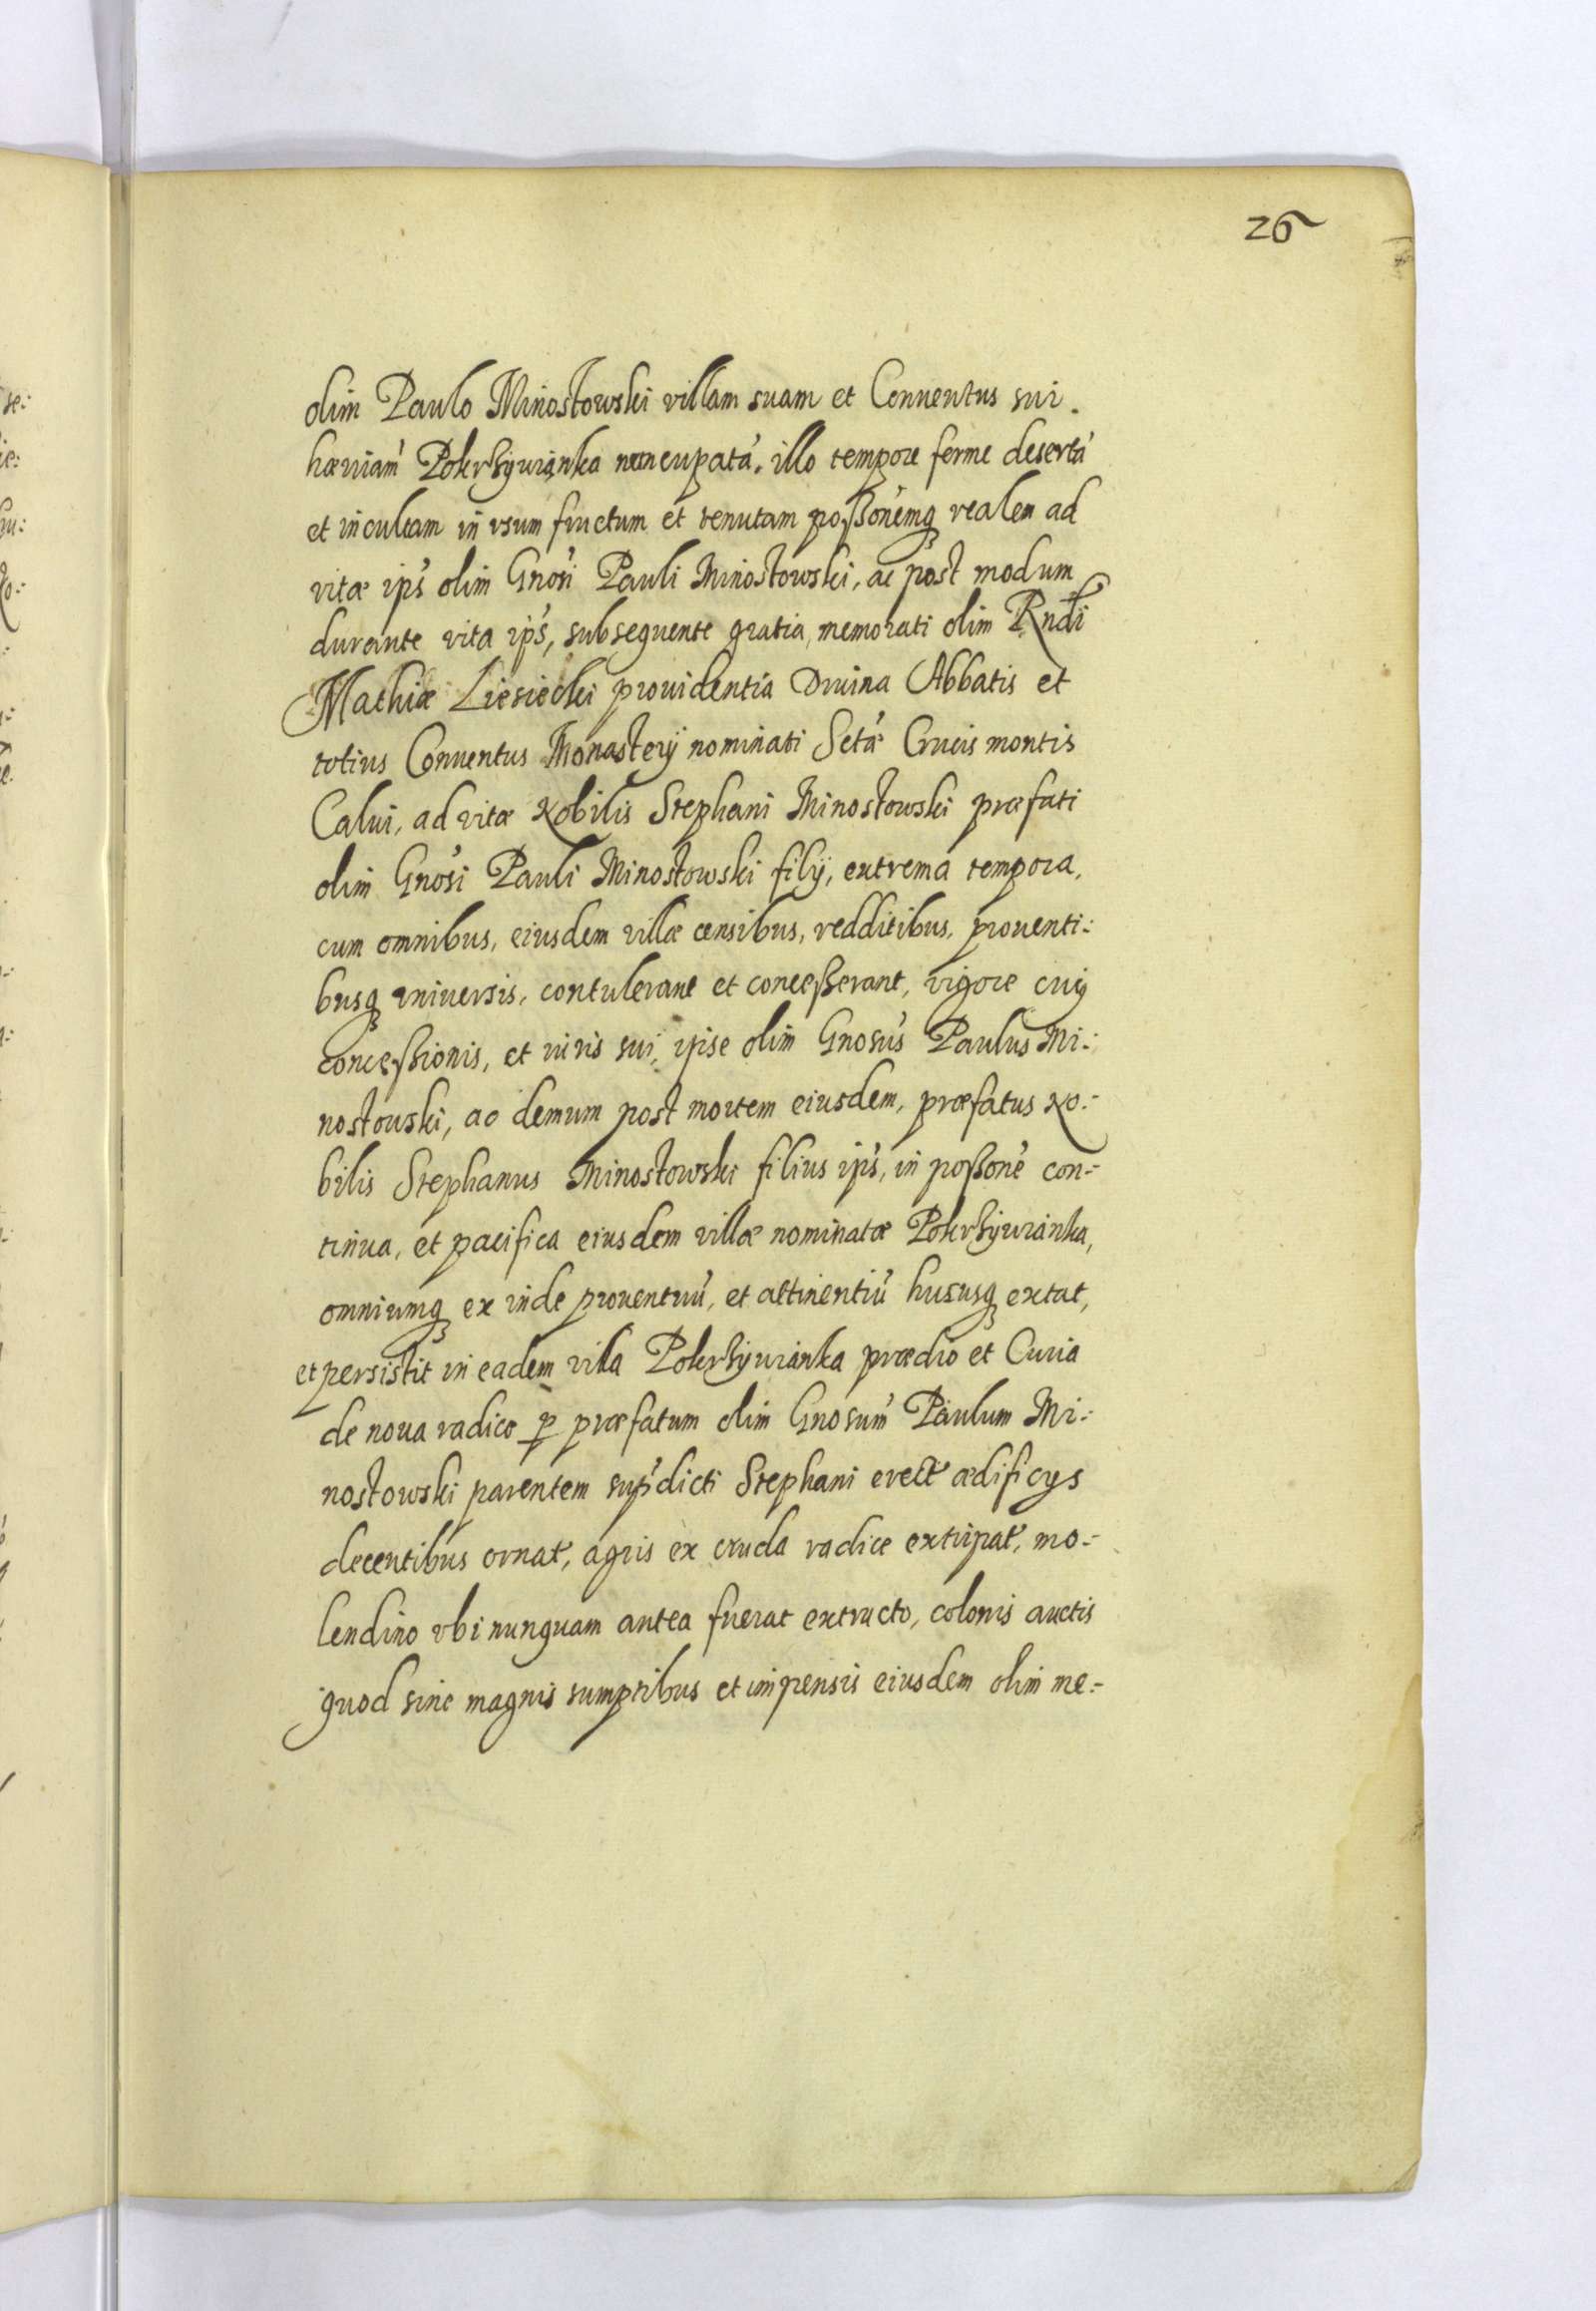 26
olim Paulo Minostowski villam suam et Conuentus sui.
hæniam̃ Pokrhÿwianka nuncupatã, illo tempore ferme desertã
et incultam in vsum fructum et tenutam poßonẽmq̃ realem ad
vitæ ips̃ olim Gnosi̇̃ Pauli Minostowski, ac post modum
durante vita ips̃, subsequente gratia, memorati olim Rndĩ
Mathiæ Liesiecki prouidentia Diuina Abbatis et
totius Conuentus Monasterÿ nominati Sctæ̃ Crucis montis
Calui, ad vitæ Nobilis Stephani Minostowski præfati
olim Gnosĩ Pauli Minostowski filÿ, extrema tempora,
cum omnibus, eiusdem villæ censibus, redditibus, prouenti:
busq̃ vniuersis, contulerant et conceßerant, vigore cuiꝰ
conceßionis, et iuris sui, ipse olim Gnosus̃ Paulus Mi:
nostowski, ac demum post mortem eiusdem, præfatus No:
bilis Stephanus Minostowski filius ips̃, in poßonẽ con:
tinua, et pacifica eiusdem villæ nominatæ Pokrhÿwianka,
omniumq̃ ex inde prouentuũ, et attinentiũ hususq̃ extat,
et persistit in eadem villa Pokrhÿwianka prædio et Curia
de noua radice ꝑ præfatum olim Gnosum̃ Paulum Mi:
nostowski parentem sup̃dicti Stephani erect̃ ædificijs
decentibus ornat̃, agris ex cruda radice extirpat̃, mo:
lendino vbi nunquam antea fuerat extructo, colonis auctis
quod sine magnis sumptibus et impensis eiusdem olim me: